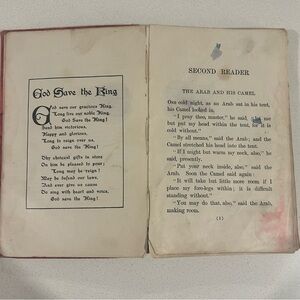 God Save the King
God save our gracious King,
Long live our noble King,
God Save the King!
Send him victorious,
Happy and glorious,
Long to reign over us,
God save the King!
Thy choicest gifts in store
On him be pleased to pour;
Long may he reign!
May he defend our laws,
And ever give us cause
To sing with heart and voice,
God save the King!
SECOND READER
THE ARAB AND HIS CAMEL
One cold night, as an Arab sat in his tent,
his Camel looked in.
"I pray thee, master," he said,
but put my head within the tent, for it is
cold without."
"By all means," said the Arab; and the
Camel stretched his head into the tent.
"If I might but warm my neck, also," he
said, presently.
"Put your neck inside, also," said the
Arab. Soon the Camel said again:
"It will take but little more room if I
place my fore-legs within; it is difficult
standing without."
"You may do that, also," said the Arab,
making room.
(1)